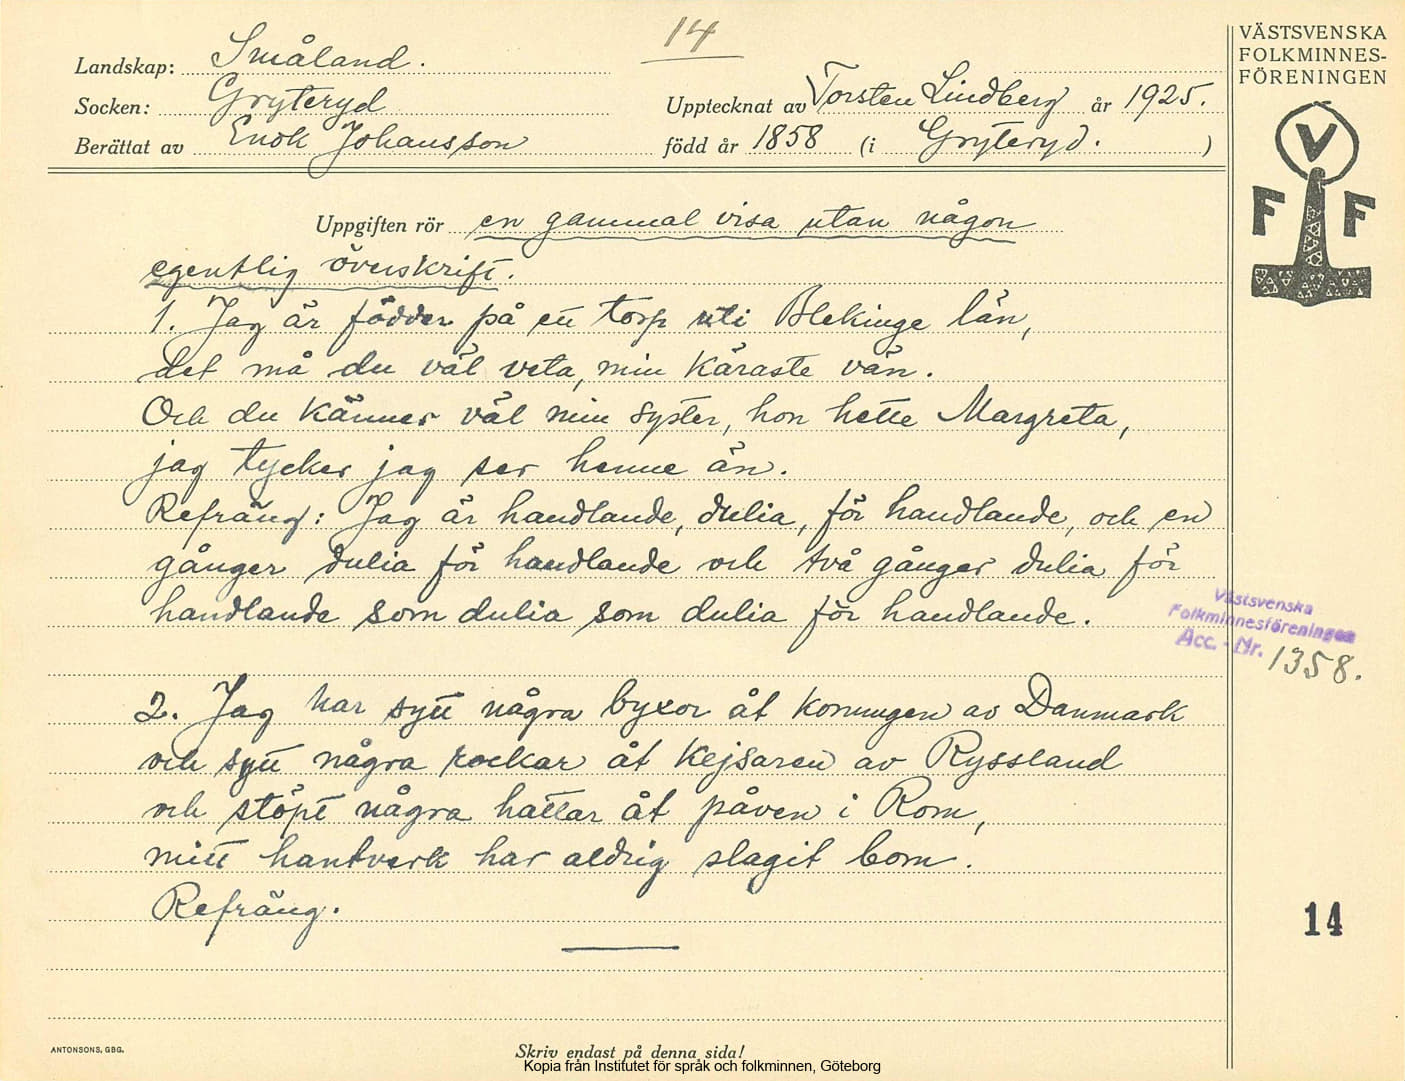 14
VÄSTSVENSKA
FOLKMINNES-
FÖRENINGEN
Landskap: Småland.
Socken: Gryteryd
Upptecknat av Torsten Lindberg år 1925.
Berättat av Enok Johansson född år 1858 (i Gryteryd. )
V
F F
Uppgiften rör en gammal visa utan någon
egentlig överskrift.
1. Jag är födder på en torp uti Blekinge län,
det må du väl veta, min käraste vän.
Och du känner väl min syster, hon hette Margreta,
jag tycker jag ser henne än.
Refräng: Jag är handlande, dulia, för handlande, och en
gånger dulia för handlande och två gånger dulia för
handlande som dulia som dulia för handlande.
Västsvenska
Folkminnesföreningen
Acc. - Nr. 1358.
2. Jag har sytt några byxor åt konungen av Danmark
och sytt några rockar åt kejsaren av Ryssland
och stöpt några hattar åt påven i Rom,
mitt hantverk har aldrig slagit bom.
Refräng.
14
ANTONSONS, GBG.
Skriv endast på denna sida!
Kopia från Institutet för språk och folkminnen, Göteborg